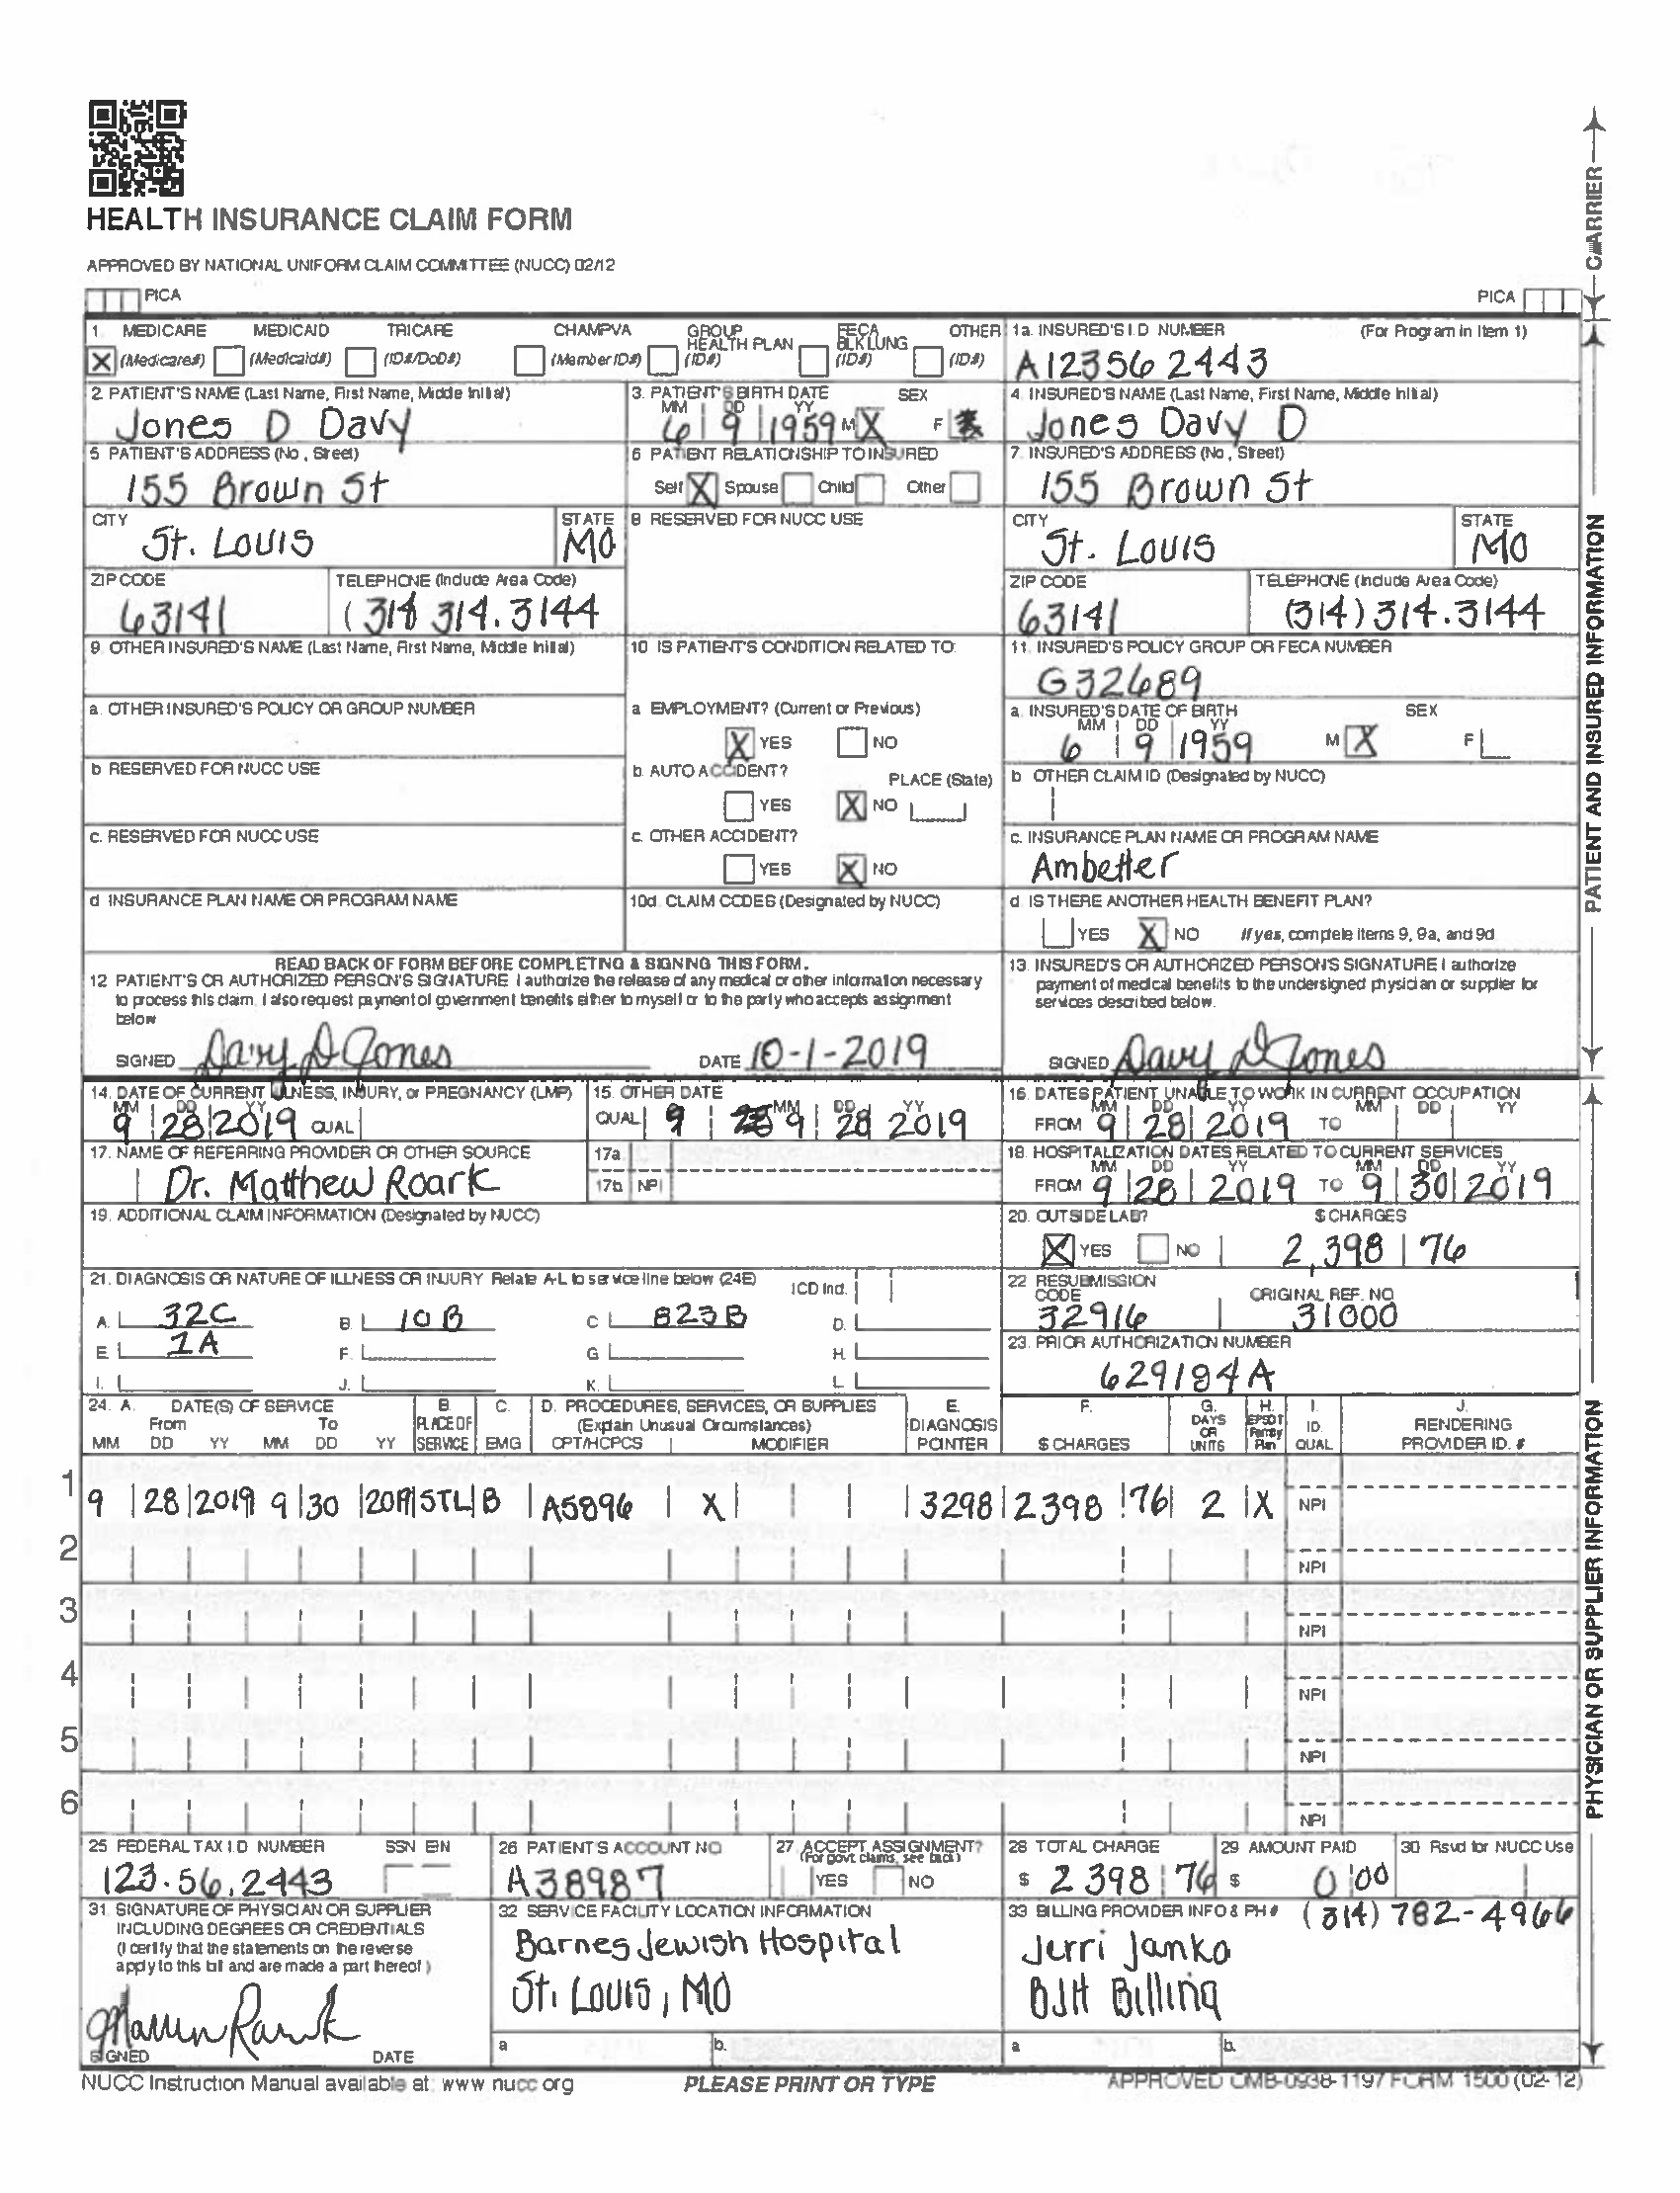 HEALTH INSURANCE CLAIM FORM
APPROVED BY NATIONAL UNIFORM CLAIM COMMITTEE (NUCC) 02/12
PICA PICA
CARRIER
1. MEDICARE MEDICAID TRICARE CHAMPVA GROUP HEALTH PLAN FECA BLK LUNG OTHER
X (Medicare#) (Medicaid#) (ID#/DoD#) (Member ID#) (ID#) (ID#) (ID#)
1a. INSURED'S I.D NUMBER (For Program in Item 1)
A123562443
2. PATIENT'S NAME (Last Name, First Name, Middle Initial)
Jones D Davy
3. PATIENT'S BIRTH DATE SEX
MM DD YY
6 9 1959 M X F
4. INSURED'S NAME (Last Name, First Name, Middle Initial)
Jones Davy D
5 PATIENT'S ADDRESS (No, Street)
155 Brown St
6 PATIENT RELATIONSHIP TO INSURED
Self X Spouse Child Other
7. INSURED'S ADDRESS (No, Street)
155 Brown St
CITY STATE
St. Louis MO
8 RESERVED FOR NUCC USE
CITY STATE
St. Louis MO
ZIP CODE TELEPHONE (Include Area Code)
63141 (314 314.3144
ZIP CODE TELEPHONE (Include Area Code)
63141 (314) 314.3144
9. OTHER INSURED'S NAME (Last Name, First Name, Middle Initial)
10 IS PATIENT'S CONDITION RELATED TO:
11. INSURED'S POLICY GROUP OR FECA NUMBER
G32689
a. OTHER INSURED'S POLICY OR GROUP NUMBER
a EMPLOYMENT? (Current or Previous)
X YES NO
a. INSURED'S DATE OF BIRTH SEX
MM DD YY
6 9 1959 M X F
b RESERVED FOR NUCC USE
b. AUTO ACCIDENT? PLACE (State)
YES X NO
b OTHER CLAIM ID (Designated by NUCC)
c. RESERVED FOR NUCC USE
c. OTHER ACCIDENT?
YES X NO
c. INSURANCE PLAN NAME OR PROGRAM NAME
Ambetter
d INSURANCE PLAN NAME OR PROGRAM NAME
10d. CLAIM CODES (Designated by NUCC)
d. IS THERE ANOTHER HEALTH BENEFIT PLAN?
YES X NO If yes, complete items 9, 9a, and 9d
PATIENT AND INSURED INFORMATION
READ BACK OF FORM BEFORE COMPLETING & SIGNING THIS FORM.
12 PATIENT'S OR AUTHORIZED PERSON'S SIGNATURE I authorize the release of any medical or other information necessary
to process this claim. I also request payment of government benefits either to myself or to the party who accepts assignment
below
SIGNED Davy D Jones DATE 10-1-2019
13. INSURED'S OR AUTHORIZED PERSON'S SIGNATURE I authorize
payment of medical benefits to the undersigned physician or supplier for
services described below.
SIGNED Davy D Jones
14. DATE OF CURRENT ILLNESS, INJURY, or PREGNANCY (LMP)
MM DD YY
9 28 2019 QUAL
15. OTHER DATE
MM DD YY
QUAL 9 9 28 2019
16. DATES PATIENT UNABLE TO WORK IN CURRENT OCCUPATION
MM DD YY MM DD YY
FROM 9 28 2019 TO
17. NAME OF REFERRING PROVIDER OR OTHER SOURCE
Dr. Matthew Roark
17a
17b NPI
18. HOSPITALIZATION DATES RELATED TO CURRENT SERVICES
MM DD YY MM DD YY
FROM 9 28 2019 TO 9 30 2019
19. ADDITIONAL CLAIM INFORMATION (Designated by NUCC)
20. OUTSIDE LAB? $ CHARGES
X YES NO 2,398 76
21. DIAGNOSIS OR NATURE OF ILLNESS OR INJURY Relate A-L to service line below (24E) ICD Ind.
A. 32C B. 10B C 823B D.
E. 1A F. G H.
I. J. K. L.
22 RESUBMISSION CODE ORIGINAL REF. NO
32916 31000
23. PRIOR AUTHORIZATION NUMBER
629184A
24. A. DATE(S) OF SERVICE B. C. D. PROCEDURES, SERVICES, OR SUPPLIES E. F. G. H. I. J.
From To PLACE OF (Explain Unusual Circumstances) DIAGNOSIS DAYS OR EPSDT Family ID. RENDERING
MM DD YY MM DD YY SERVICE EMG CPT/HCPCS MODIFIER POINTER $ CHARGES UNITS Plan QUAL PROVIDER ID. #
1 9 28 2019 9 30 2019 STL B A5896 X 3298 2398 76 2 X NPI
2 NPI
3 NPI
4 NPI
5 NPI
6 NPI
PHYSICIAN OR SUPPLIER INFORMATION
25 FEDERAL TAX I.D NUMBER SSN EIN
123.56.2443
26 PATIENT'S ACCOUNT NO
A38987
27 ACCEPT ASSIGNMENT?
(For govt claims, see back)
YES NO
28 TOTAL CHARGE
$ 2398 76
29 AMOUNT PAID
$ 0 00
30 Rsvd for NUCC Use
31 SIGNATURE OF PHYSICIAN OR SUPPLIER
INCLUDING DEGREES OR CREDENTIALS
(I certify that the statements on the reverse
apply to this bill and are made a part thereof)
SIGNED DATE
32 SERVICE FACILITY LOCATION INFORMATION
Barnes Jewish Hospital
St. Louis, MO
a b.
33 BILLING PROVIDER INFO & PH # (314) 782-4966
Jerri Janko
BJH Billing
a b.
NUCC Instruction Manual available at: www nucc org PLEASE PRINT OR TYPE APPROVED OMB-0938-1197 FORM 1500 (02-12)